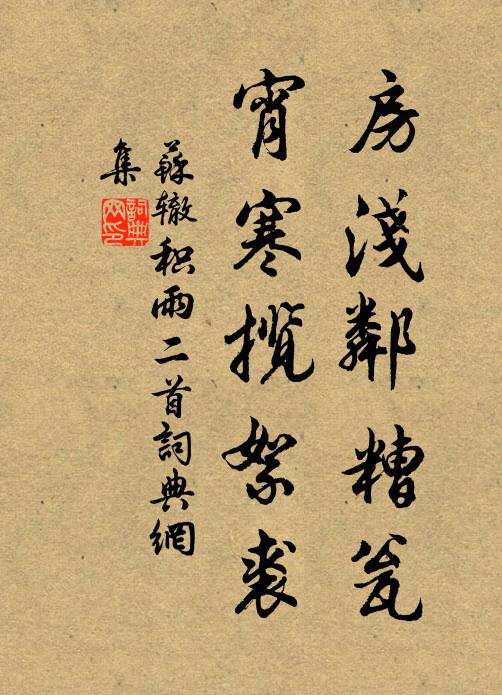 房淺鄰糟瓮
宵寒攬絮裘
蘇轍积雨二首詞典網
集
詞典網印